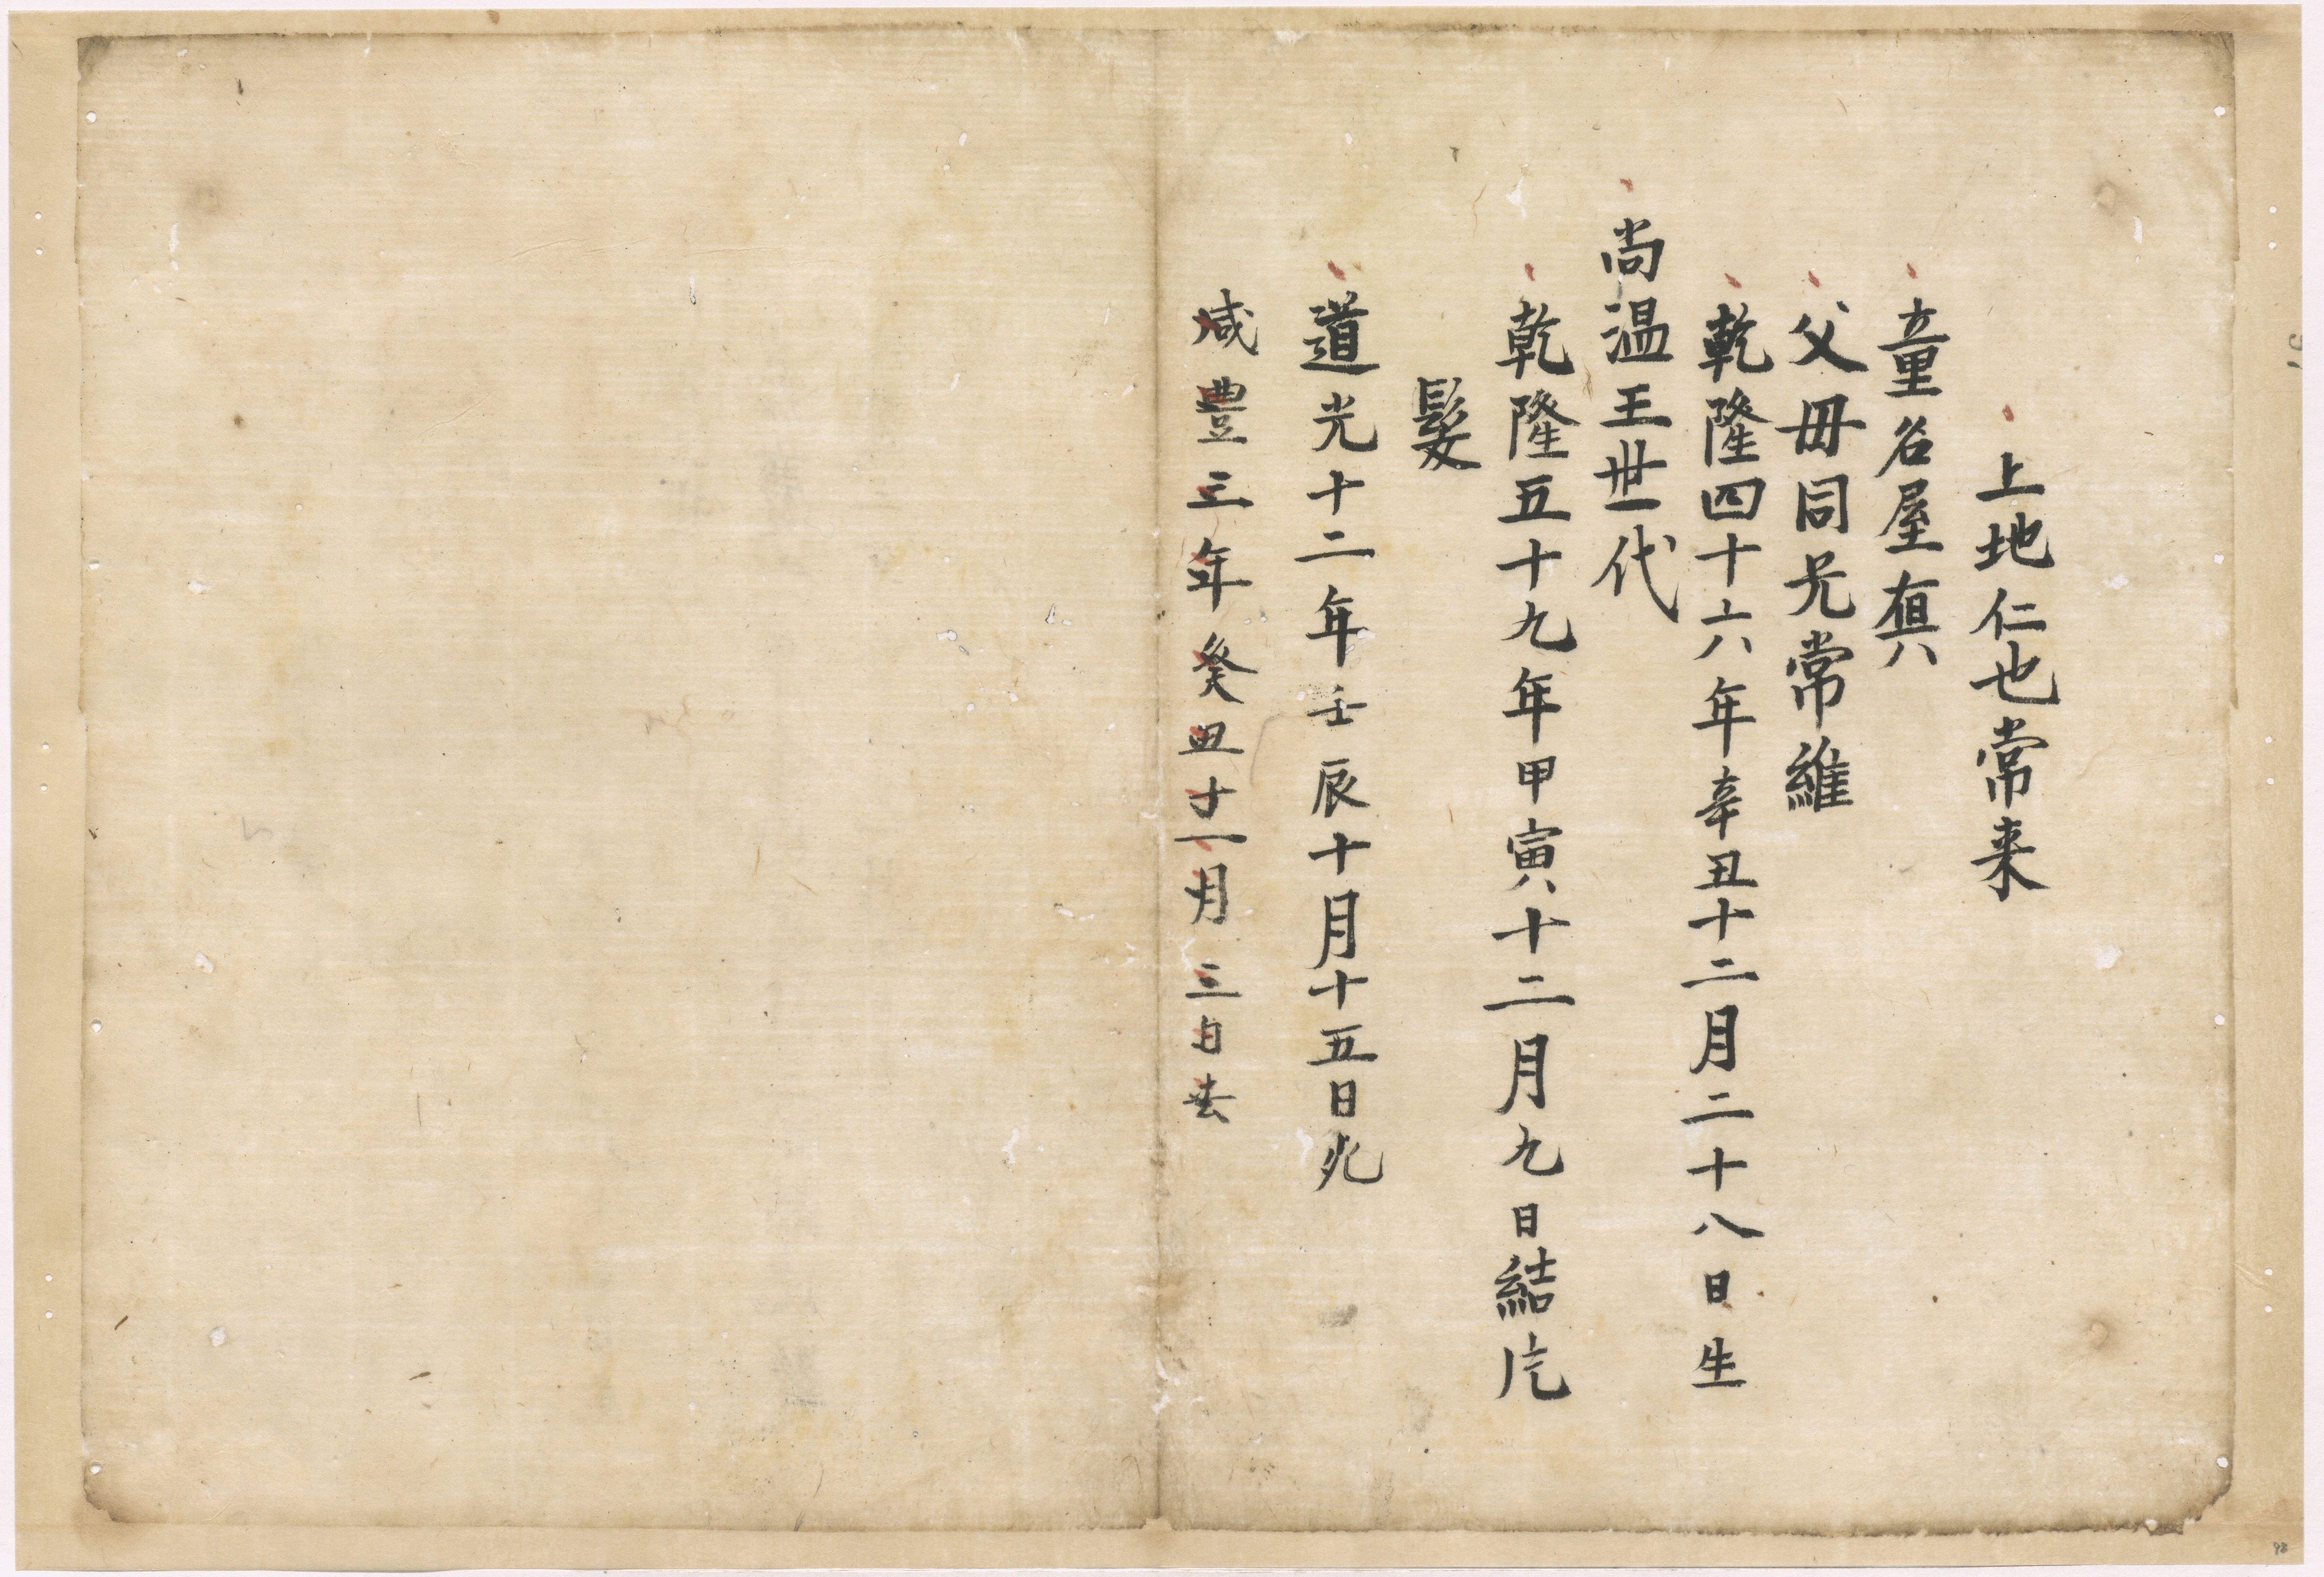 上地仁也常来
童名屋真
父毋同兄常維
乾隆四十六年辛丑十二月二十八日生
尚温王世代
乾隆五十九年甲寅十二月九日結片
髪
道光十二年壬辰十月十五日死
咸豊三年癸丑十一月三日去